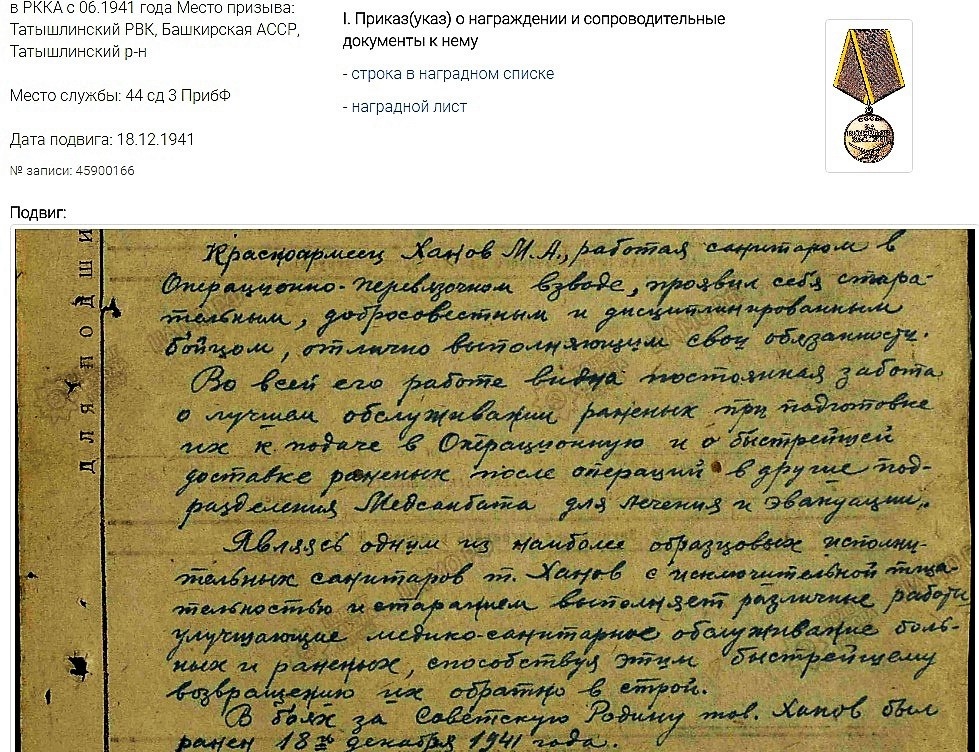 в РККА с 06.1941 года Место призыва:
Татышлинский РВК, Башкирская АССР,
Татышлинский р-н
Место службы: 44 сд 3 ПрибФ
Дата подвига: 18.12.1941
№ записи: 45900166
I. Приказ(указ) о награждении и сопроводительные
документы к нему
- строка в наградном списке
- наградной лист
Подвиг:
для подши
Красноармеец Ханов М.А., работая санитаром в
Операционно-перевязочном взводе, проявил себя стара-
тельным, добросовестным и дисциплинированным
бойцом, отлично выполняющим свои обязанности.
Во всей его работе видна постоянная забота
о лучшем обслуживании раненых при подготовке
их к подаче в Операционную и о быстрейшей
доставке раненых после операций в другие под-
разделения Медсанбата для лечения и эвакуации.
Являясь одним из наиболее образцовых исполни-
тельных санитаров т. Ханов с исключительной тща-
тельностью и старанием выполняет различные работы
улучшающие медико-санитарное обслуживание боль-
ных и раненых, способствуя этим быстрейшему
возвращению их обратно в строй.
В боях за Советскую Родину тов. Ханов был
ранен 18го декабря 1941 года.